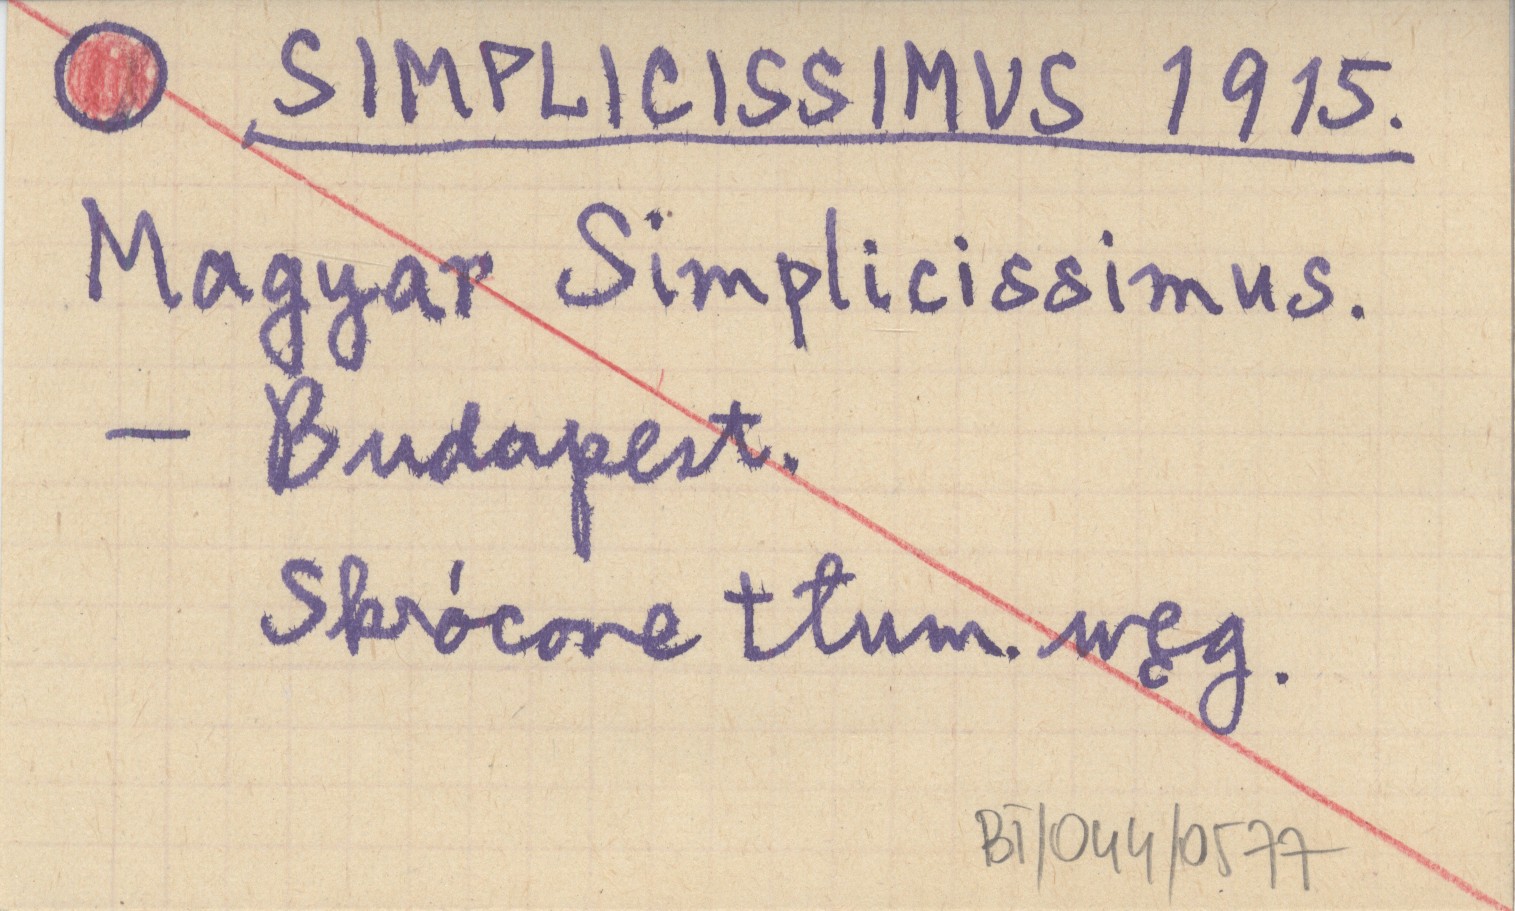 SIMPLICISSIMUS 1915.
Magyar Simplicissimus.
— Budapest.
Skrócone tłum. węg.
BT/044/0577